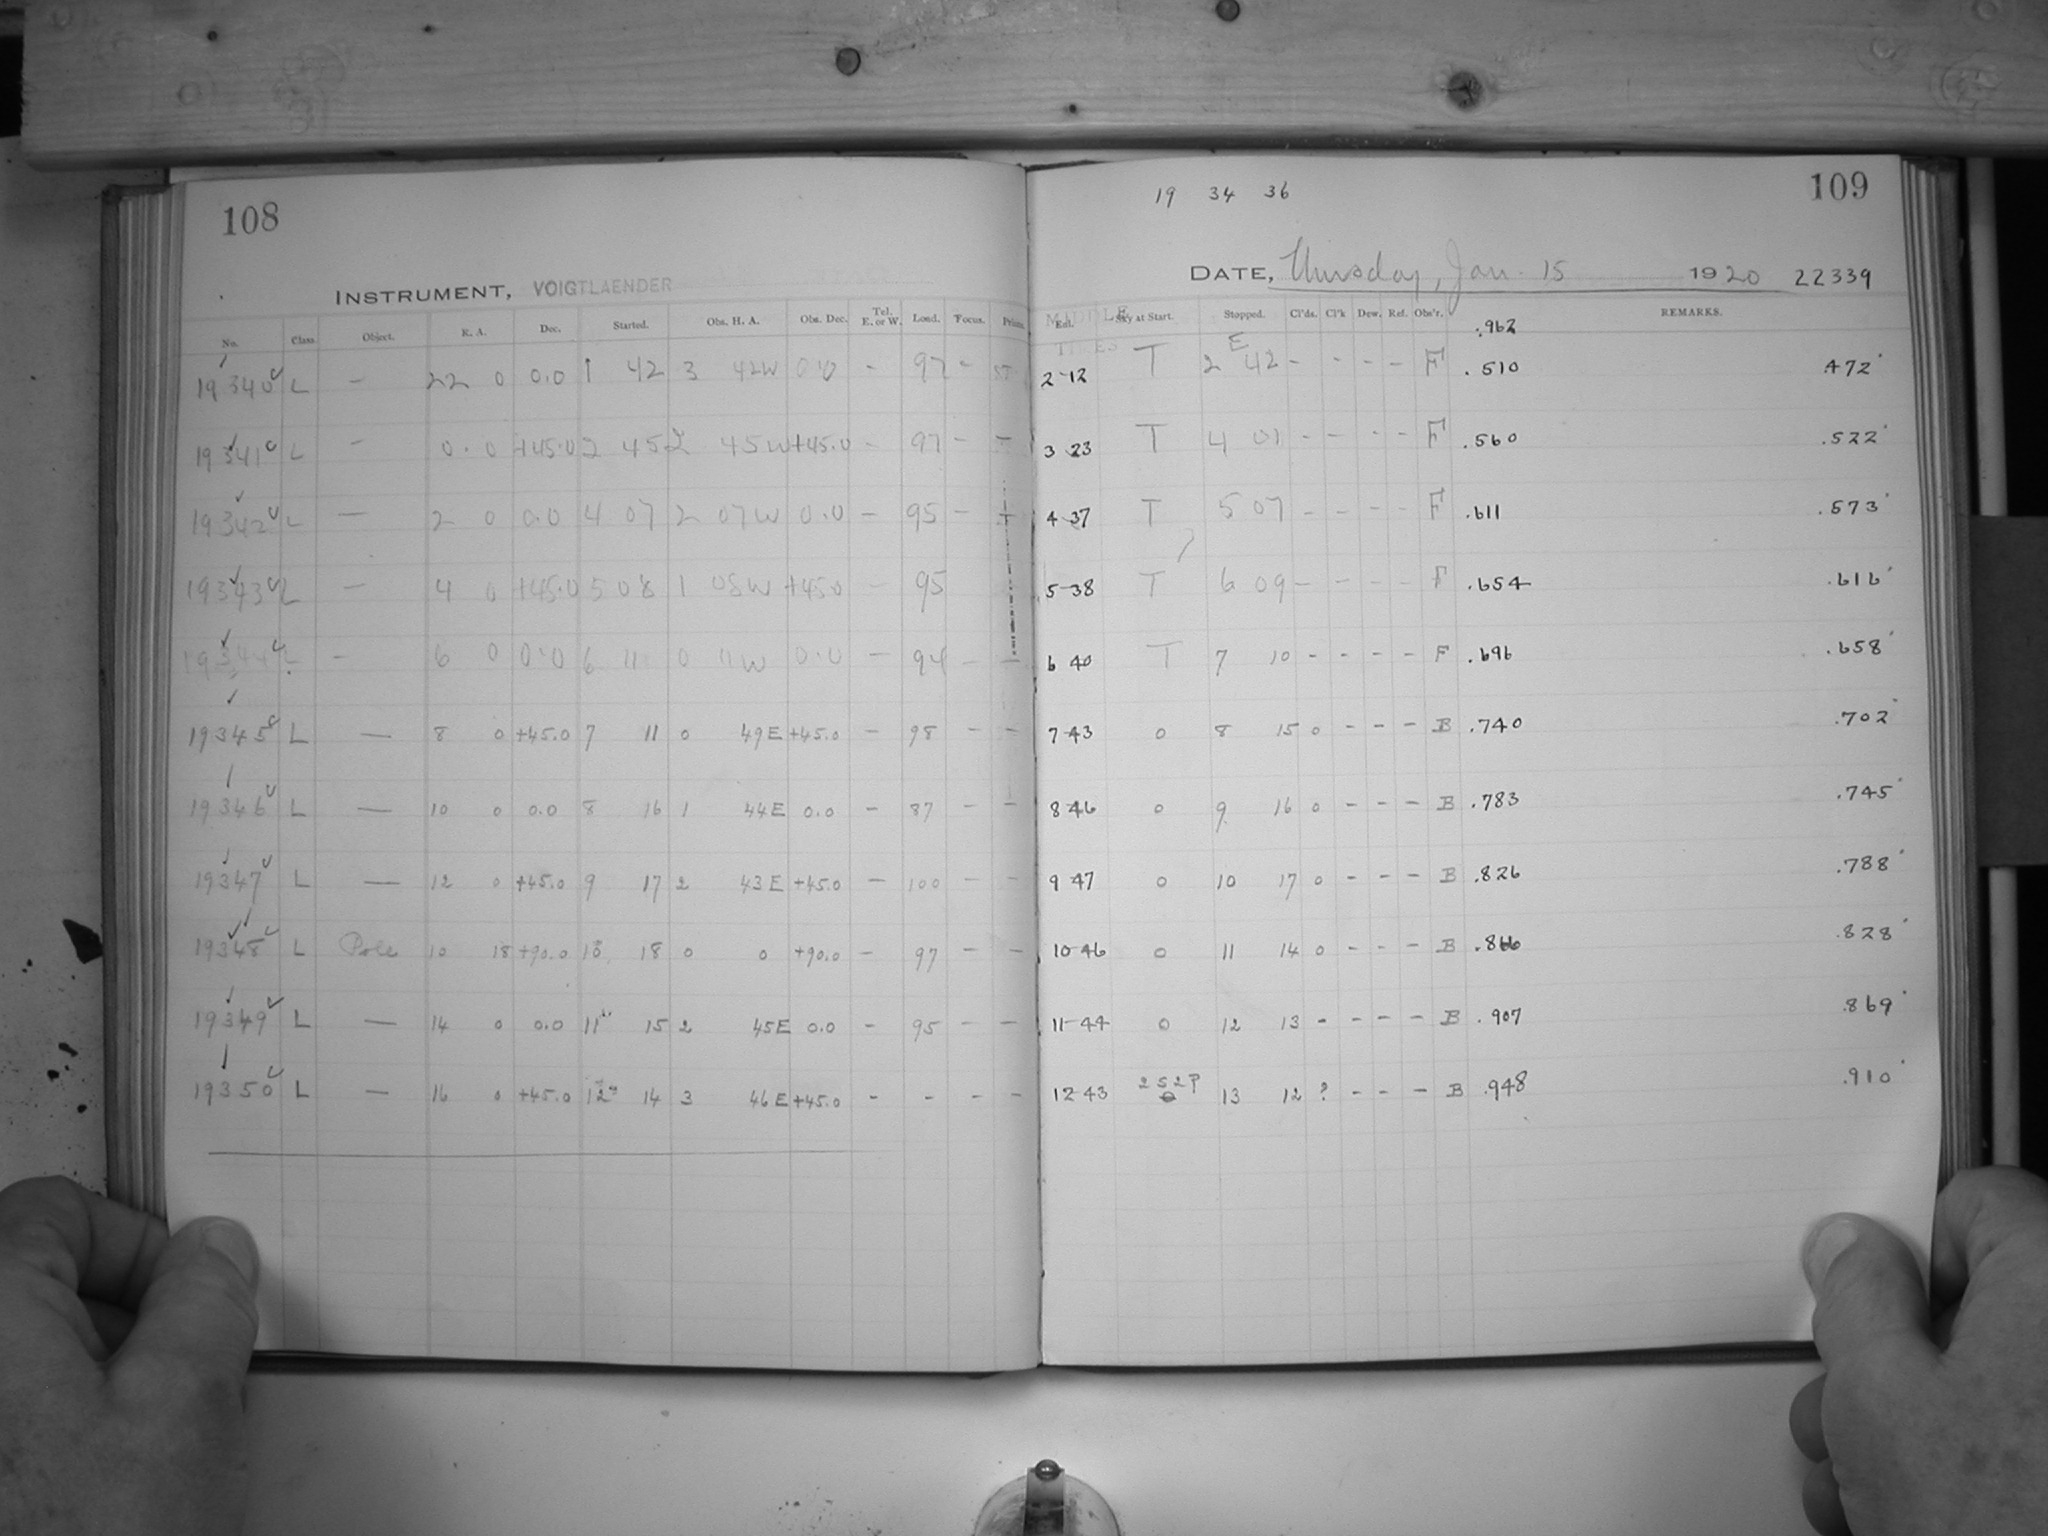 108
INSTRUMENT, VOIGTLAENDER
No. Class. Object. R. A. Dec. Started. Obs. H. A. Obs. Dec. Tel. E. or W. Load. Focus. Prism.
19340 L – 22 0 0.0 1 42 3 42W 0.0 – 97 –
19341 L – 0.0 +45.0 2 45 2 45W +45.0 – 97 – –
19342 L — 2 0 0.0 4 07 2 07W 0.0 – 95 –
19343 L – 4 0 +45.0 5 08 1 08W +45.0 – 95
19344 L – 6 0 0.0 6 11 0 11W 0.0 – 94 – –
19345 L — 8 0 +45.0 7 11 0 49E +45.0 – 98 – –
19346 L — 10 0 0.0 8 16 1 44E 0.0 – 87 – –
19347 L — 12 0 +45.0 9 17 2 43E +45.0 – 100 – –
19348 L Pole 10 18 +90.0 10 18 0 0 +90.0 – 97 – –
19349 L — 14 0 0.0 11 15 2 45E 0.0 – 95 – –
19350 L – 16 0 +45.0 12 14 3 46E +45.0 – – – –
109
19 34 36
DATE, Thursday, Jan. 15 1920 22339
MIDDLE TIMES
Exl. Sky at Start. Stopped. Cl'ds. Cl'k Dew. Ref. Obs'r. REMARKS.
.962
E
2 12 T 2 42 – – – – F .510 .472
3 23 T 4 01 – – – – F .560 .522
4 37 T 5 07 – – – – F .611 .573
5 38 T 6 09 – – – – F .654 .616
6 40 T 7 10 – – – – F .696 .658
7 43 0 8 15 0 – – – B .740 .702
8 46 0 9 16 0 – – – B .783 .745
9 47 0 10 17 0 – – – B .826 .788
10 46 0 11 14 0 – – – B .866 .828
11 44 0 12 13 – – – – B .907 .869
12 43 252? 13 12 ? – – – B .948 .910